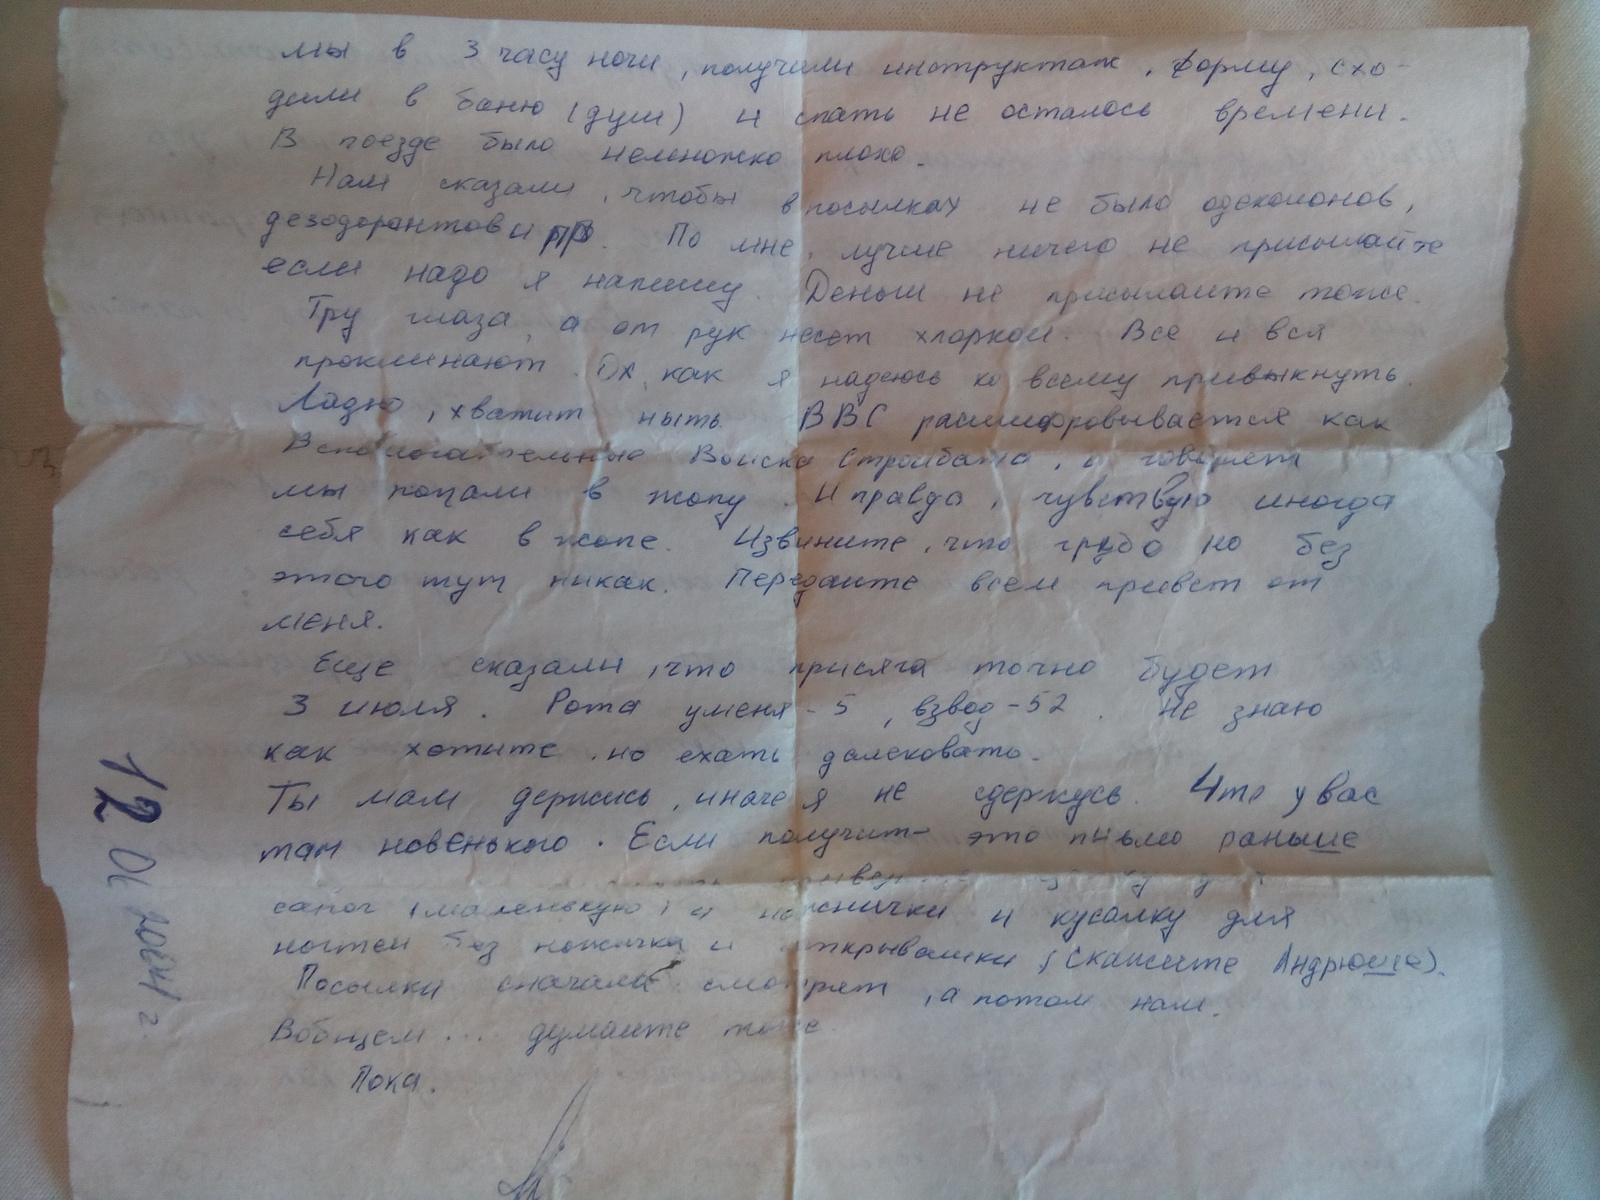 мы в 3 часу ночи, получили инструктаж, форму, схо-
дили в баню (душ) и спать не осталось времени.
В поезде было немножко плохо.
Нам сказали, чтобы в посылках не было одеколонов,
дезодорантов и пр. По мне, лучше ничего не присылайте
если надо я напишу. Деньги не присылайте тоже.
Тру глаза, а от рук несет хлоркой. Все и вся
проклинают. Ох, как я надеюсь ко всему привыкнуть.
Ладно, хватит ныть. ВВС расшифровывается как
Вспомогательные Войска Стройбата, и говорят
мы попали в жопу. И правда, чувствую иногда
себя как в жопе. Извините, что грубо но без
этого тут никак. Передайте всем привет от
меня.
Еще сказали, что присяга точно будет
3 июля. Рота у меня - 5, взвод - 52. Не знаю
как хотите, но ехать далековато.
Ты мам держись, иначе я не сдержусь. Что у вас
там новенького. Если получит- это пиьмо раньше
сапог (маленькую) и кусалку для
ногтей без ножичка и открывашки (скажите Андрюше).
Посылки сначала смотрят, а потом нам.
Вобщем... думайте тоже.
Пока.
12 01